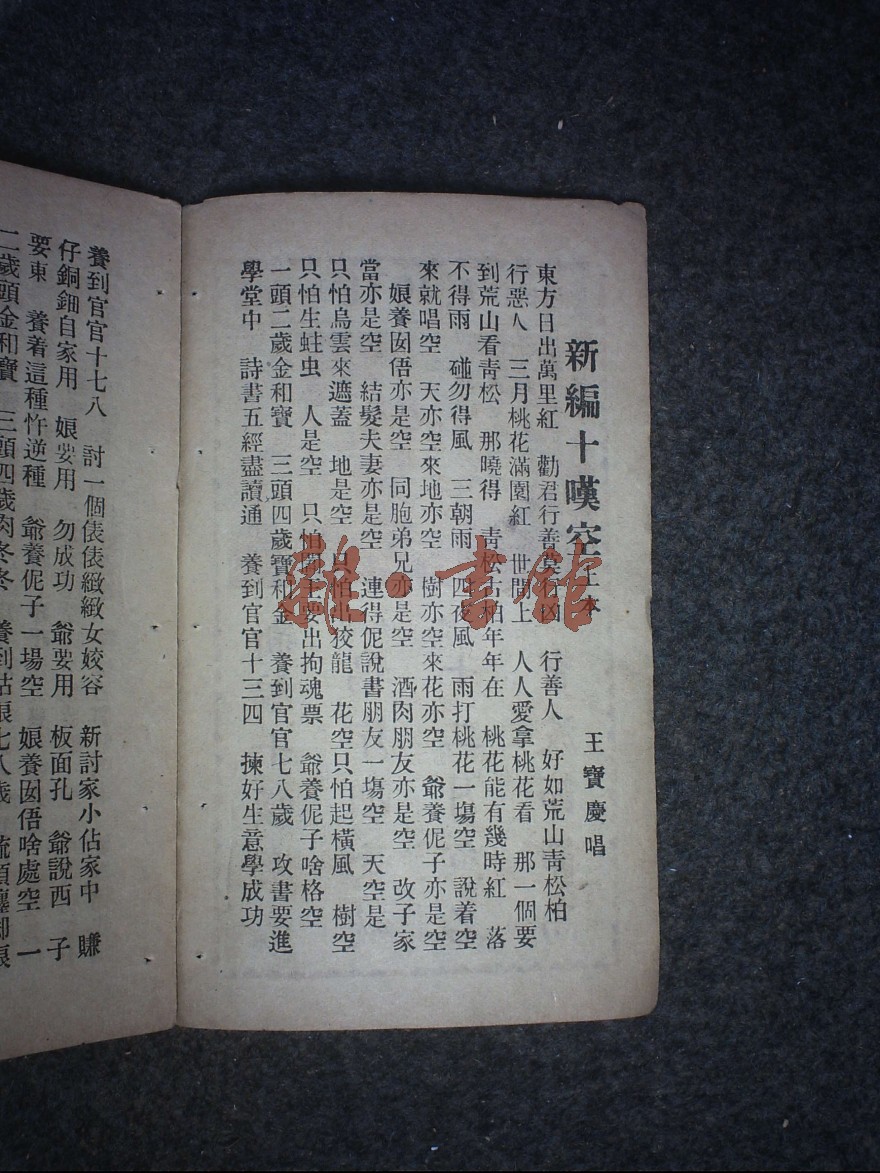 新編十嘆空上本
王寶慶唱
東方日出萬里紅 勸君行善莫行凶 行善人 好如荒山靑松柏
行惡人 三月桃花滿園紅 世間上 人人愛拿桃花看 那一個要
到荒山看靑松 那曉得 靑松古柏年年在 桃花能有幾時紅 落
不得雨 碰勿得風 三朝雨 四夜風 雨打桃花一塲空 說着空
來就唱空 天亦空來地亦空 樹亦空來花亦空 爺養伲子亦是空
娘養囡俉亦是空 同胞弟兄亦是空 酒肉朋友亦是空 改子家
當亦是空 結髮夫妻亦是空 連得伲說書朋友一塲空 天空是
只怕烏雲來遮蓋 地是空 只怕出狡龍 花空只怕起橫風 樹空
只怕生蛀虫 人是空 只怕 主要出拘魂票 爺養伲子啥格空
一頭二歲金和寶 三頭四歲寶和金 養到官官七八歲 攻書要進
學堂中 詩書五經盡讀通 養到官官十三四 揀好生意學成功
養到官官十七八 討一個俵俵緻緻女姣容 新討家小佔家中 賺
仔銅鈿自家用 娘要用 勿成功 爺要用 板面孔 爺說西 子
要東 養着這種忤逆種 爺養伲子一場空 娘養囡俉啥處空 一
二歲頭金和寶 三頭四歲肉冬冬 養到姑娘七八歲 梳頭纏脚
雜·書館